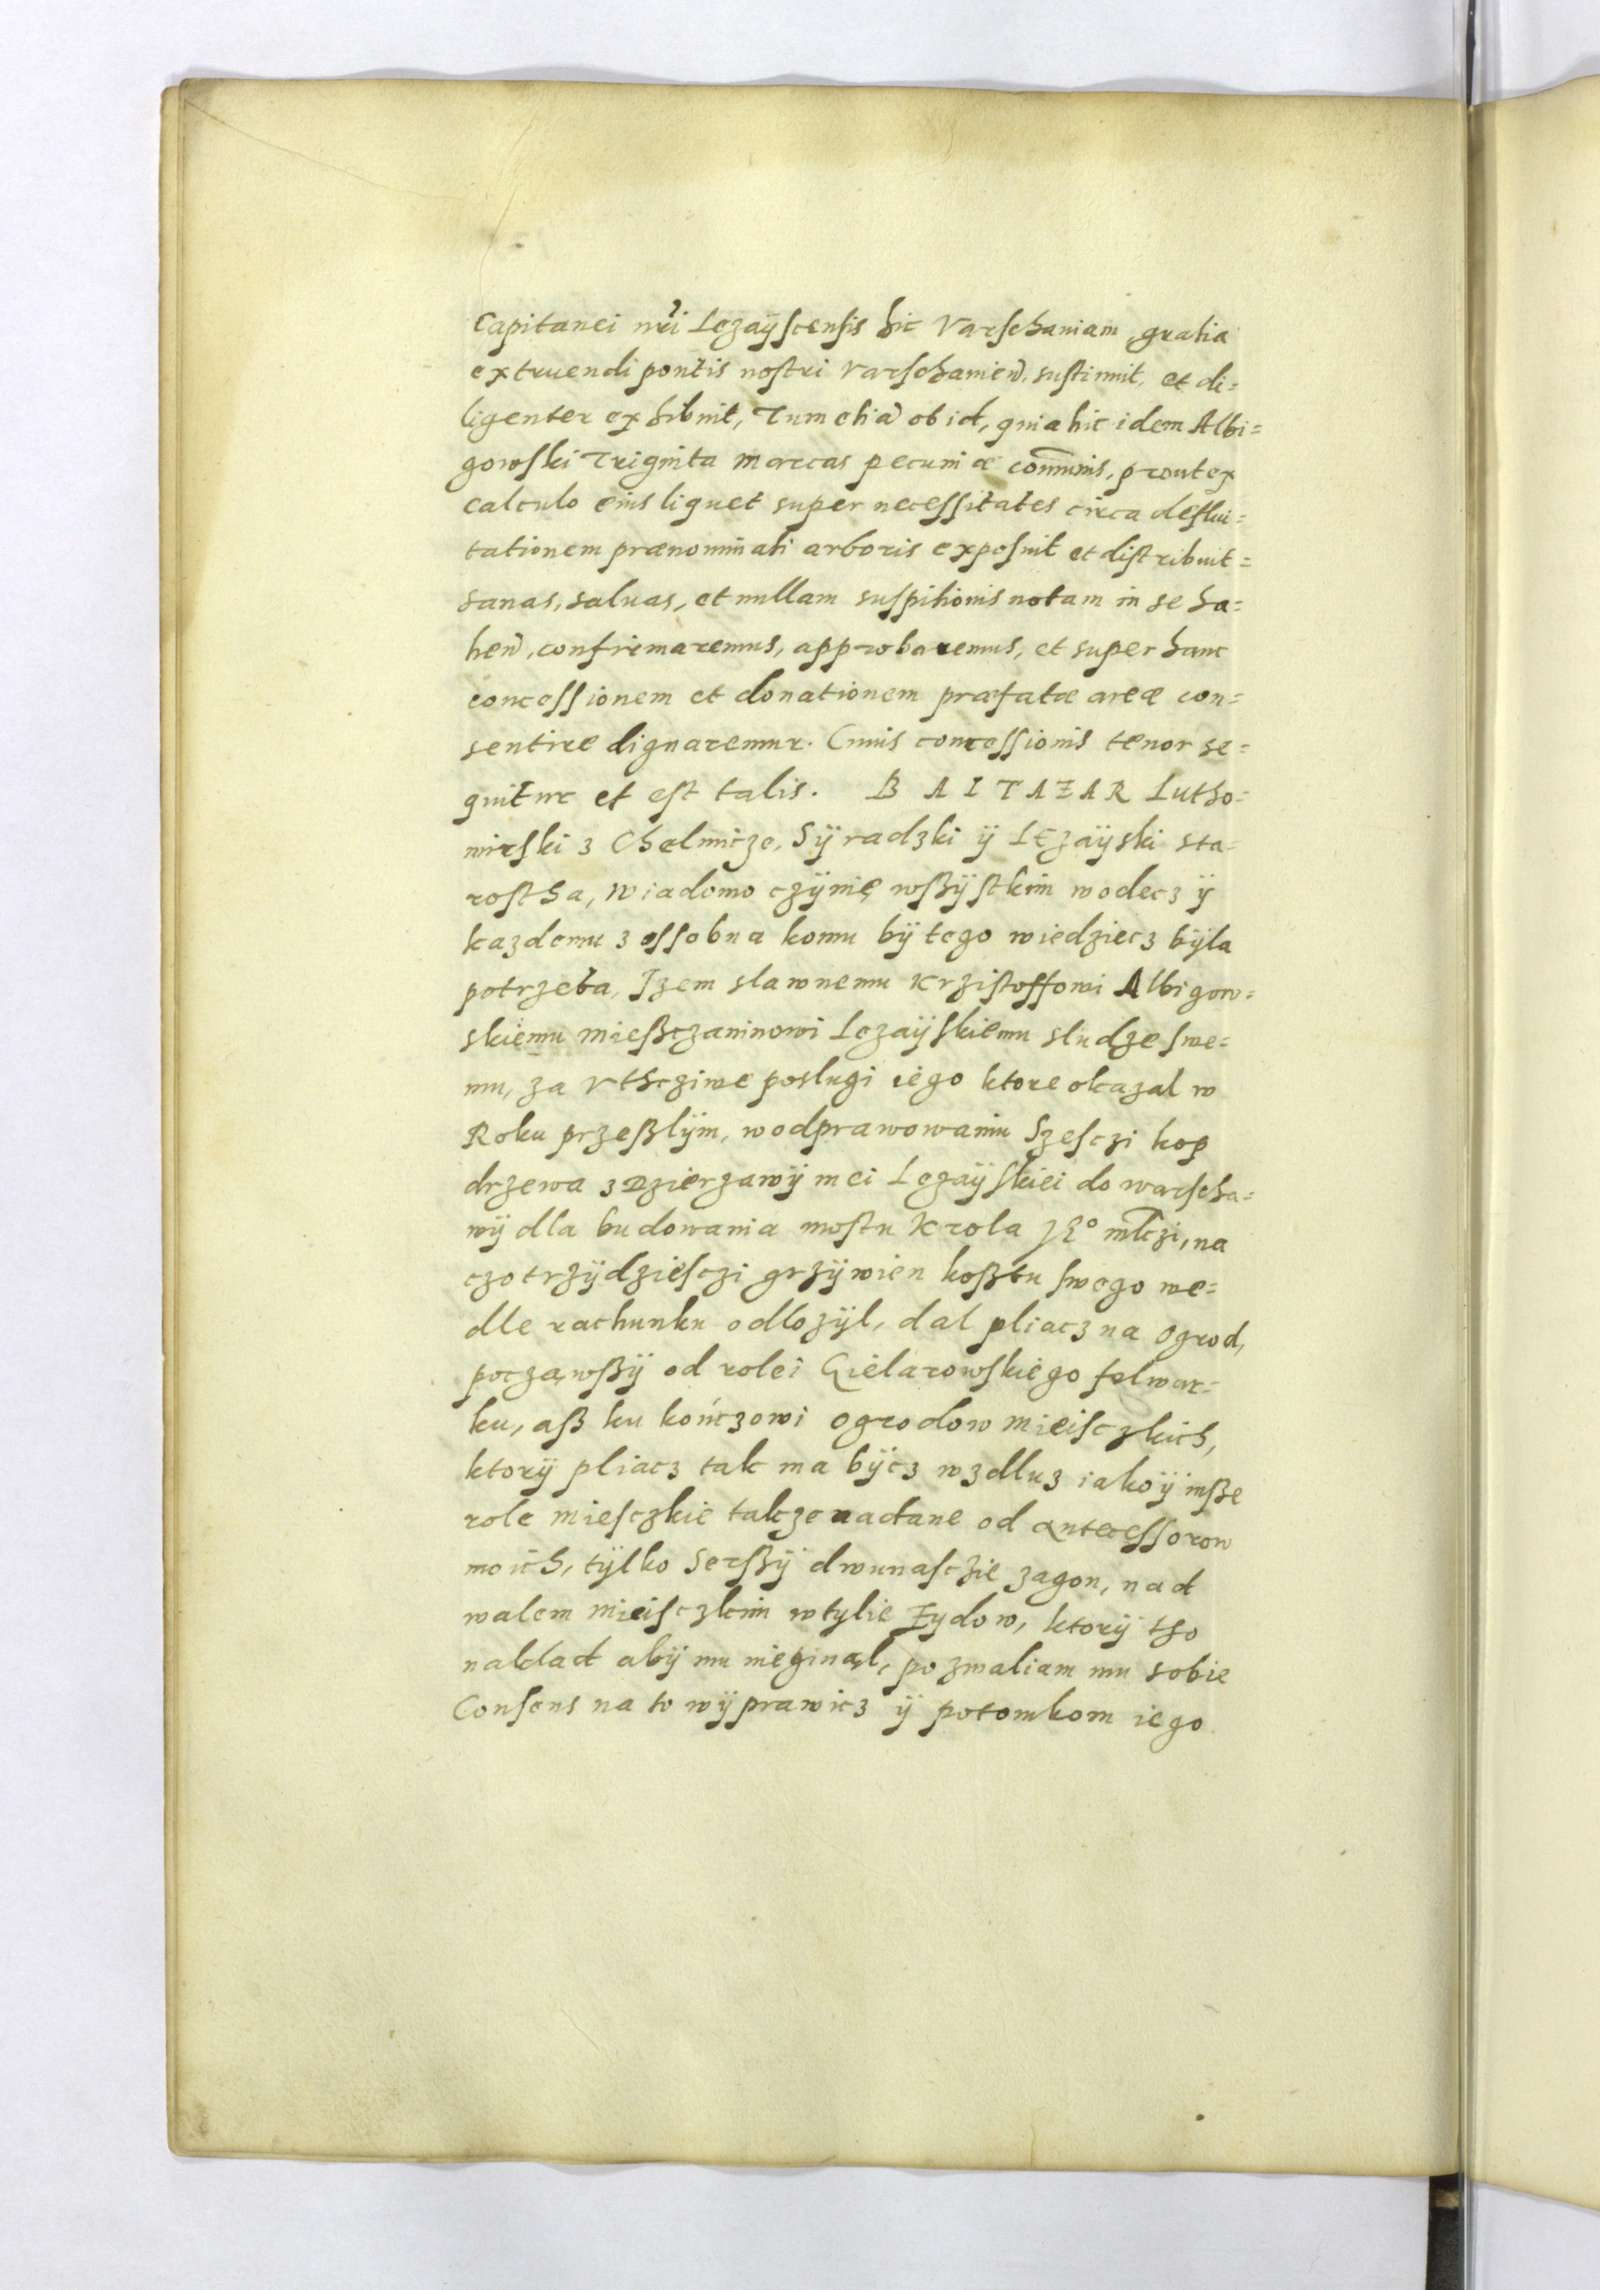 Capitanei nri Lezaÿscensis hic Varschaniam gratia
extruendi pontis nostri Varschanien. sustinuit, et di=
ligenter exhibuit, Tum etia ob id, quia hic idem Albi=
gowski Triginta marcas pecuniæ comunis, prout ex
calculo eius liquet super necessitates circa deflui=
tationem prænominati arboris exposuit et distribuit=
sanas, saluas, et nullam suspitionis notam in se ha=
ben, confirmaremus, approbaremus, et super hanc
concessionem et donationem præfatæ areæ con=
sentire dignaremur. Cuius concessionis tenor se=
quitur et est talis. BALTAZAR Lutho=
mirski z Chelmicze, Sÿradzki ÿ Lezaÿski sta=
rostha, Wiadomo czÿnię wßÿstkim wobecz ÿ
kazdemu z ossobna komu bÿ tego wiedziecz bÿla
potrzeba, Izem slawnemu Krzistoffowi Albigow=
skiemu mießczaninowi Lezaÿskiemu sludze swe=
mu, za Vthcziwe poslugi iego ktore okazal w
Roku przeßlÿm, w odprawowaniu Szesczi kop
drzewa z Dzierzawÿ mei Lezaÿskiei do warscha=
wÿ dla budowania mostu Krola JEº mlczi, na
czo trzÿdziesczi grzÿwien koßtu swego we=
dle rachunku odlozÿl, dal pliacz na Ogrod,
poczawßÿ od rolei Gielarowskiego folwar=
ku, aß ku kończowi ogrodow mieisczkich,
ktorÿ pliacz tak ma bÿcz wzdluz iako ÿ inße
role miesczkie takze nadane od antecessorow
moich, tÿlko serßÿ dwunasczie zagon, nad
walem mieisczkim w tylie Zydow, ktorÿ tho
naklad abÿ mu nieginąl, pozwaliam mu sobie
Consens na to wÿprawicz ÿ potomkom iego